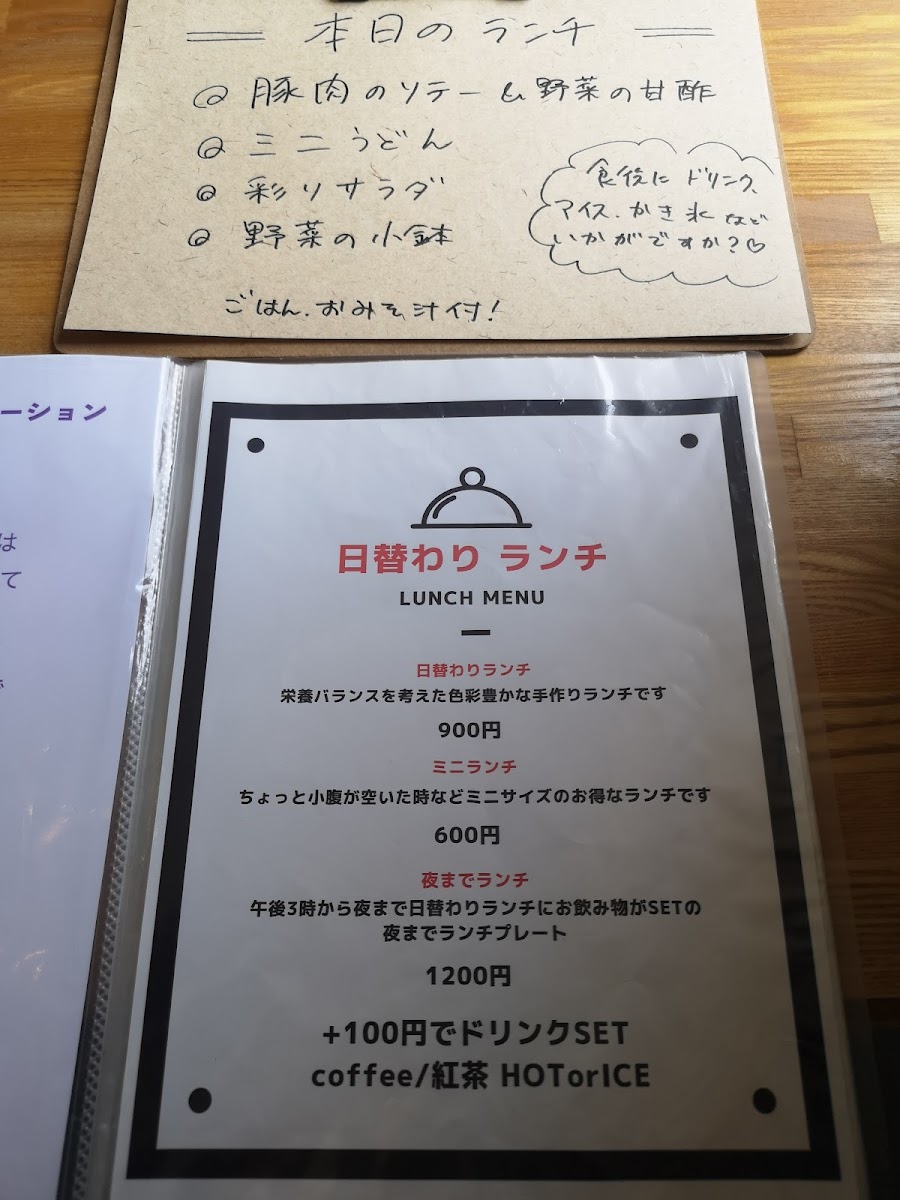 本日のランチ
豚肉のソテー & 野菜の甘酢
ミニうどん
彩りサラダ
野菜の小鉢
食後にドリンク、
アイス、かき氷など
いかがですか?♡
ごはん、おみそ汁付!
ーション
は
て
日替わり ランチ
LUNCH MENU
日替わりランチ
栄養バランスを考えた色彩豊かな手作りランチです
900円
ミニランチ
ちょっと小腹が空いた時などミニサイズのお得なランチです
600円
夜までランチ
午後3時から夜まで日替わりランチにお飲み物がSETの
夜までランチプレート
1200円
+100円でドリンクSET
coffee/紅茶 HOTorICE